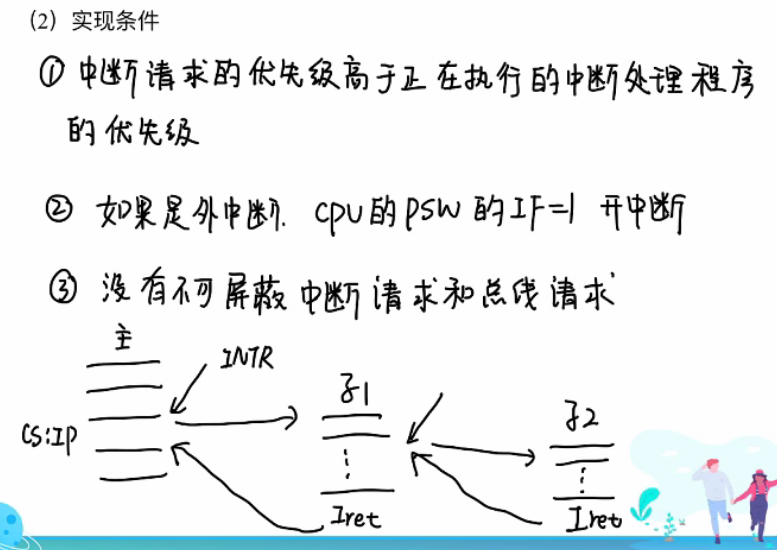 （2）实现条件
① 中断请求的优先级高于正在执行的中断处理程序
的优先级
② 如果是外中断. CPU的PSW的IF=1 开中断
③ 没有不可屏蔽中断请求和总线请求
主
INTR
子1
子2
CS:IP
Iret
Iret